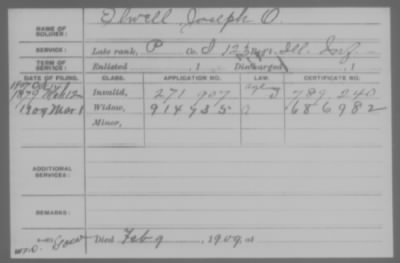 NAME OF SOLDIER: Elwell, Joseph O.
SERVICE: Late rank, P Co. I, 123 Reg. Ill. Inf
TERM OF SERVICE: Enlisted , 1 Discharged , 1
DATE OF FILING. CLASS. APPLICATION NO. LAW. CERTIFICATE NO.
Invalid, 271 907 789 240
1909 Mar 1 Widow, 914935 686982
Minor,
ADDITIONAL SERVICES:
REMARKS:
Died Feb 9, 1909, at